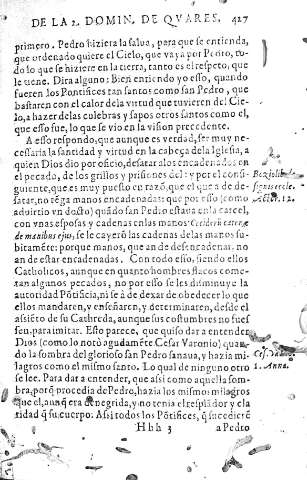 DE LA 2. DOMIN. DE QVARES. 427
primero. Pedro hiziera la salua, para que se entienda,
que ordenado quiere el Cielo, que vaya por Pedro, to-
do lo que se hiziere en la tierra, tanto es el respeto, que
le tiene. Dira alguno: Bien entiendo yo esso, quando
fueren los Pontifices tan santos como san Pedro, que
bastaren con el calor dela virtud que tuvieren del Cie-
lo, a hazer delas culebras y sapos otros santos como el,
que esso fue, lo que se vio en la vision precedente.
A esso respondo, que aunque es verdad, ser muy ne-
cessaria la santidad y virtud en la cabeça dela Iglesia, a
quien Dios dio por oficio, desatar alos encadenados en
el pecado, de los grillos y prisiones del: y por el consi-
guiente, que es muy puesto en razõ, que el que a de de-
satar, no tẽga manos encadenadas: que por esso (como
aduirtio vn docto) quãdo san Pedro estaua en la carcel,
con vnas esposas y cadenas enlas manos: Ceciderũt catenæ
de manibus ejus, se le cayerõ las cadenas delas manos su-
bitamẽte: porque manos, que an de desencadenar, no
an de estar encadenadas. Con todo esso, siendo ellos
Catholicos, aunque en quanto hombres flacos come-
tan algunos pecados, no por esso se les disminuye la
autoridad Põtificia, ni se à de dexar de obedecer lo que
ellos mandaren, y enseñaren, y determinaren, desde el
assiẽto de su Cathreda, aunque sus costumbres no fues
sen para imitar. Esto parece, que quiso dar a entender
Dios (como lo notò agudamẽte Cesar Varonio) quan-
do la sombra del glorioso san Pedro sanaua, y hazia mi-
lagros como el mismo santo. Lo qual de ninguno otro
se lee. Para dar a entender, que assi como aquella som-
bra, por q̃ procedia de Pedro, hazia los mismos milagros
que el, aunq̃ era denegrida, y no tenia el resplãdor y cla
ridad q̃ su cuerpo: Assi todos los Põtifices, q̃ sucedierẽ
Hhh 3 a Pedro
Actor. 12.
1. Anna.